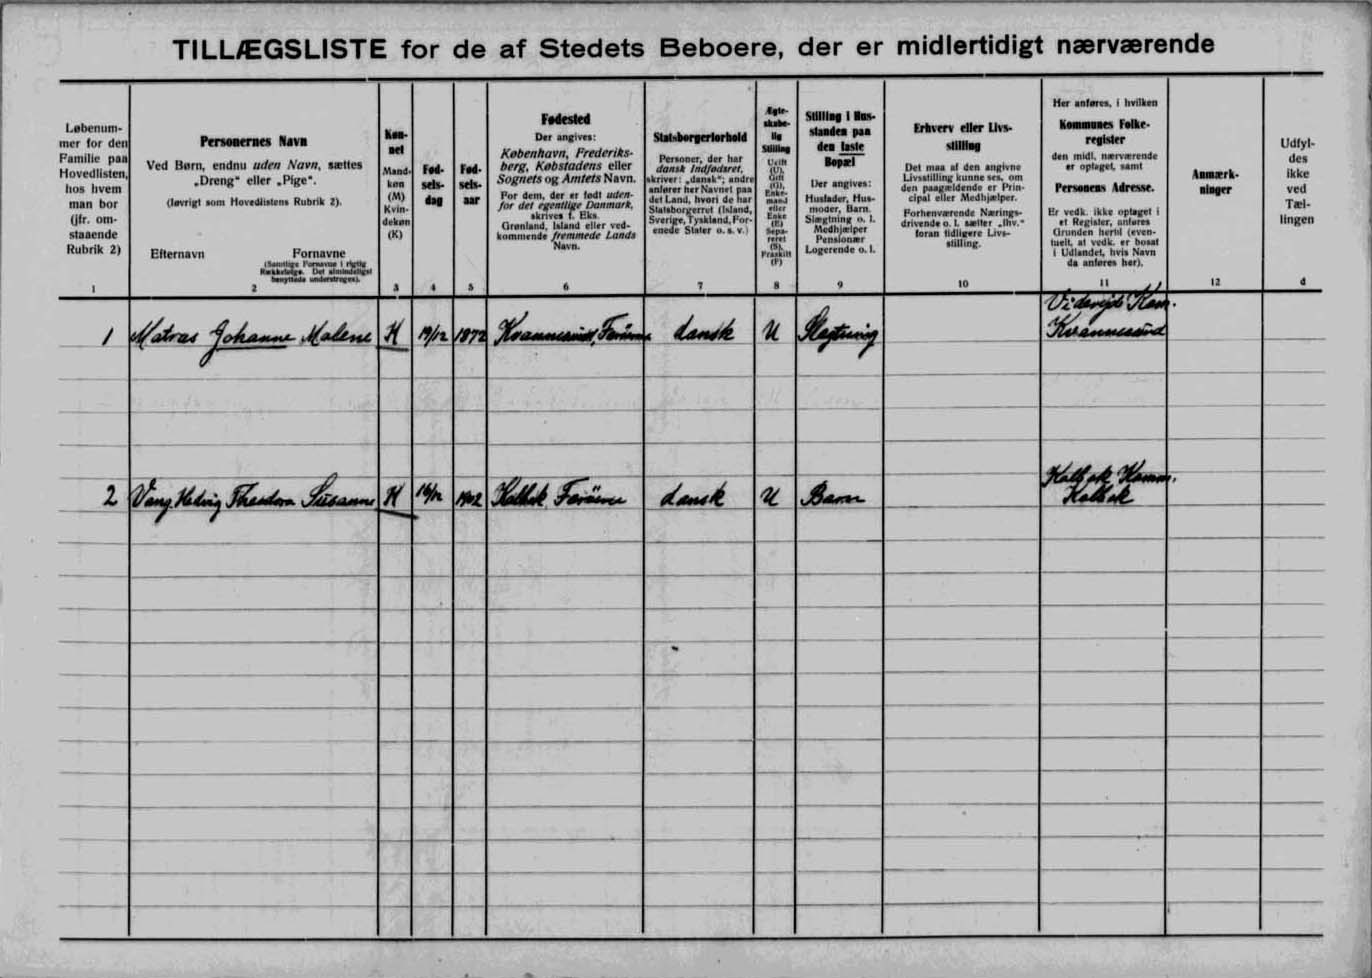 TILLÆGSLISTE for de af Stedets Beboere, der er midlertidigt nærværende
Løbenum-
mer for den
Familie paa
Hovedlisten,
hos hvem
man bor
(jfr. om-
staaende
Rubrik 2)
1
Personernes Navn
Ved Børn, endnu uden Navn, sættes
„Dreng" eller „Pige".
(Iøvrigt som Hovedlistens Rubrik 2).
Efternavn
Fornavne
(Samtlige Fornavne i rigtig
Rækkefølge. Det almindeligst
benyttede understreges).
2
Køn-
net
Mand-
køn
(M)
Kvin-
dekøn
(K)
3
Fød-
sels-
dag
4
Fød-
sels-
aar
5
Fødested
Der angives:
København, Frederiks-
berg, Købstadens eller
Sognets og Amtets Navn.
For dem, der er født uden-
for det egentlige Danmark,
skrives f. Eks.
Grønland, Island eller ved-
kommende fremmede Lands
Navn.
6
Statsborgerforhold
Personer, der har
dansk Indfødsret,
skriver: „dansk"; andre
anfører her Navnet paa
det Land, hvori de har
Statsborgerret (Island,
Sverige, Tyskland, For-
enede Stater o. s. v.)
7
Ægte-
skabe-
lig
Stilling
Ugift
(U),
Gift
(G),
Enke-
mand
eller
Enke
(E)
Sepa-
reret
(S),
Fraskilt
(F)
8
Stilling i Hus-
standen paa
den faste
Bopæl
Der angives:
Husfader, Hus-
moder, Barn,
Slægtning o. l.
Medhjælper
Pensionær
Logerende o. l.
9
Erhverv eller Livs-
stilling
Det maa af den angivne
Livsstilling kunne ses, om
den paagældende er Prin-
cipal eller Medhjælper.
Forhenværende Nærings-
drivende o. l. sætter „fhv."
foran tidligere Livs-
stilling.
10
Her anføres, i hvilken
Kommunes Folke-
register
den midl. nærværende
er optaget, samt
Personens Adresse.
Er vedk. ikke optaget i
et Register, anføres
Grunden hertil (even-
tuelt, at vedk. er bosat
i Udlandet, hvis Navn
da anføres her).
11
Anmærk-
ninger
12
Udfyl-
des
ikke
ved
Tæl-
lingen
d
Viderejds Kom.
1 Matras Johanne Malene K 19/12 1872 Kvannesund, Færøerne dansk U Slægtning Kvannesund
Kolbak Komm.
2 Vang Hedvig Theodora Susanne K 16/12 1902 Kolbak Færöerne dansk U Barn Kolbak